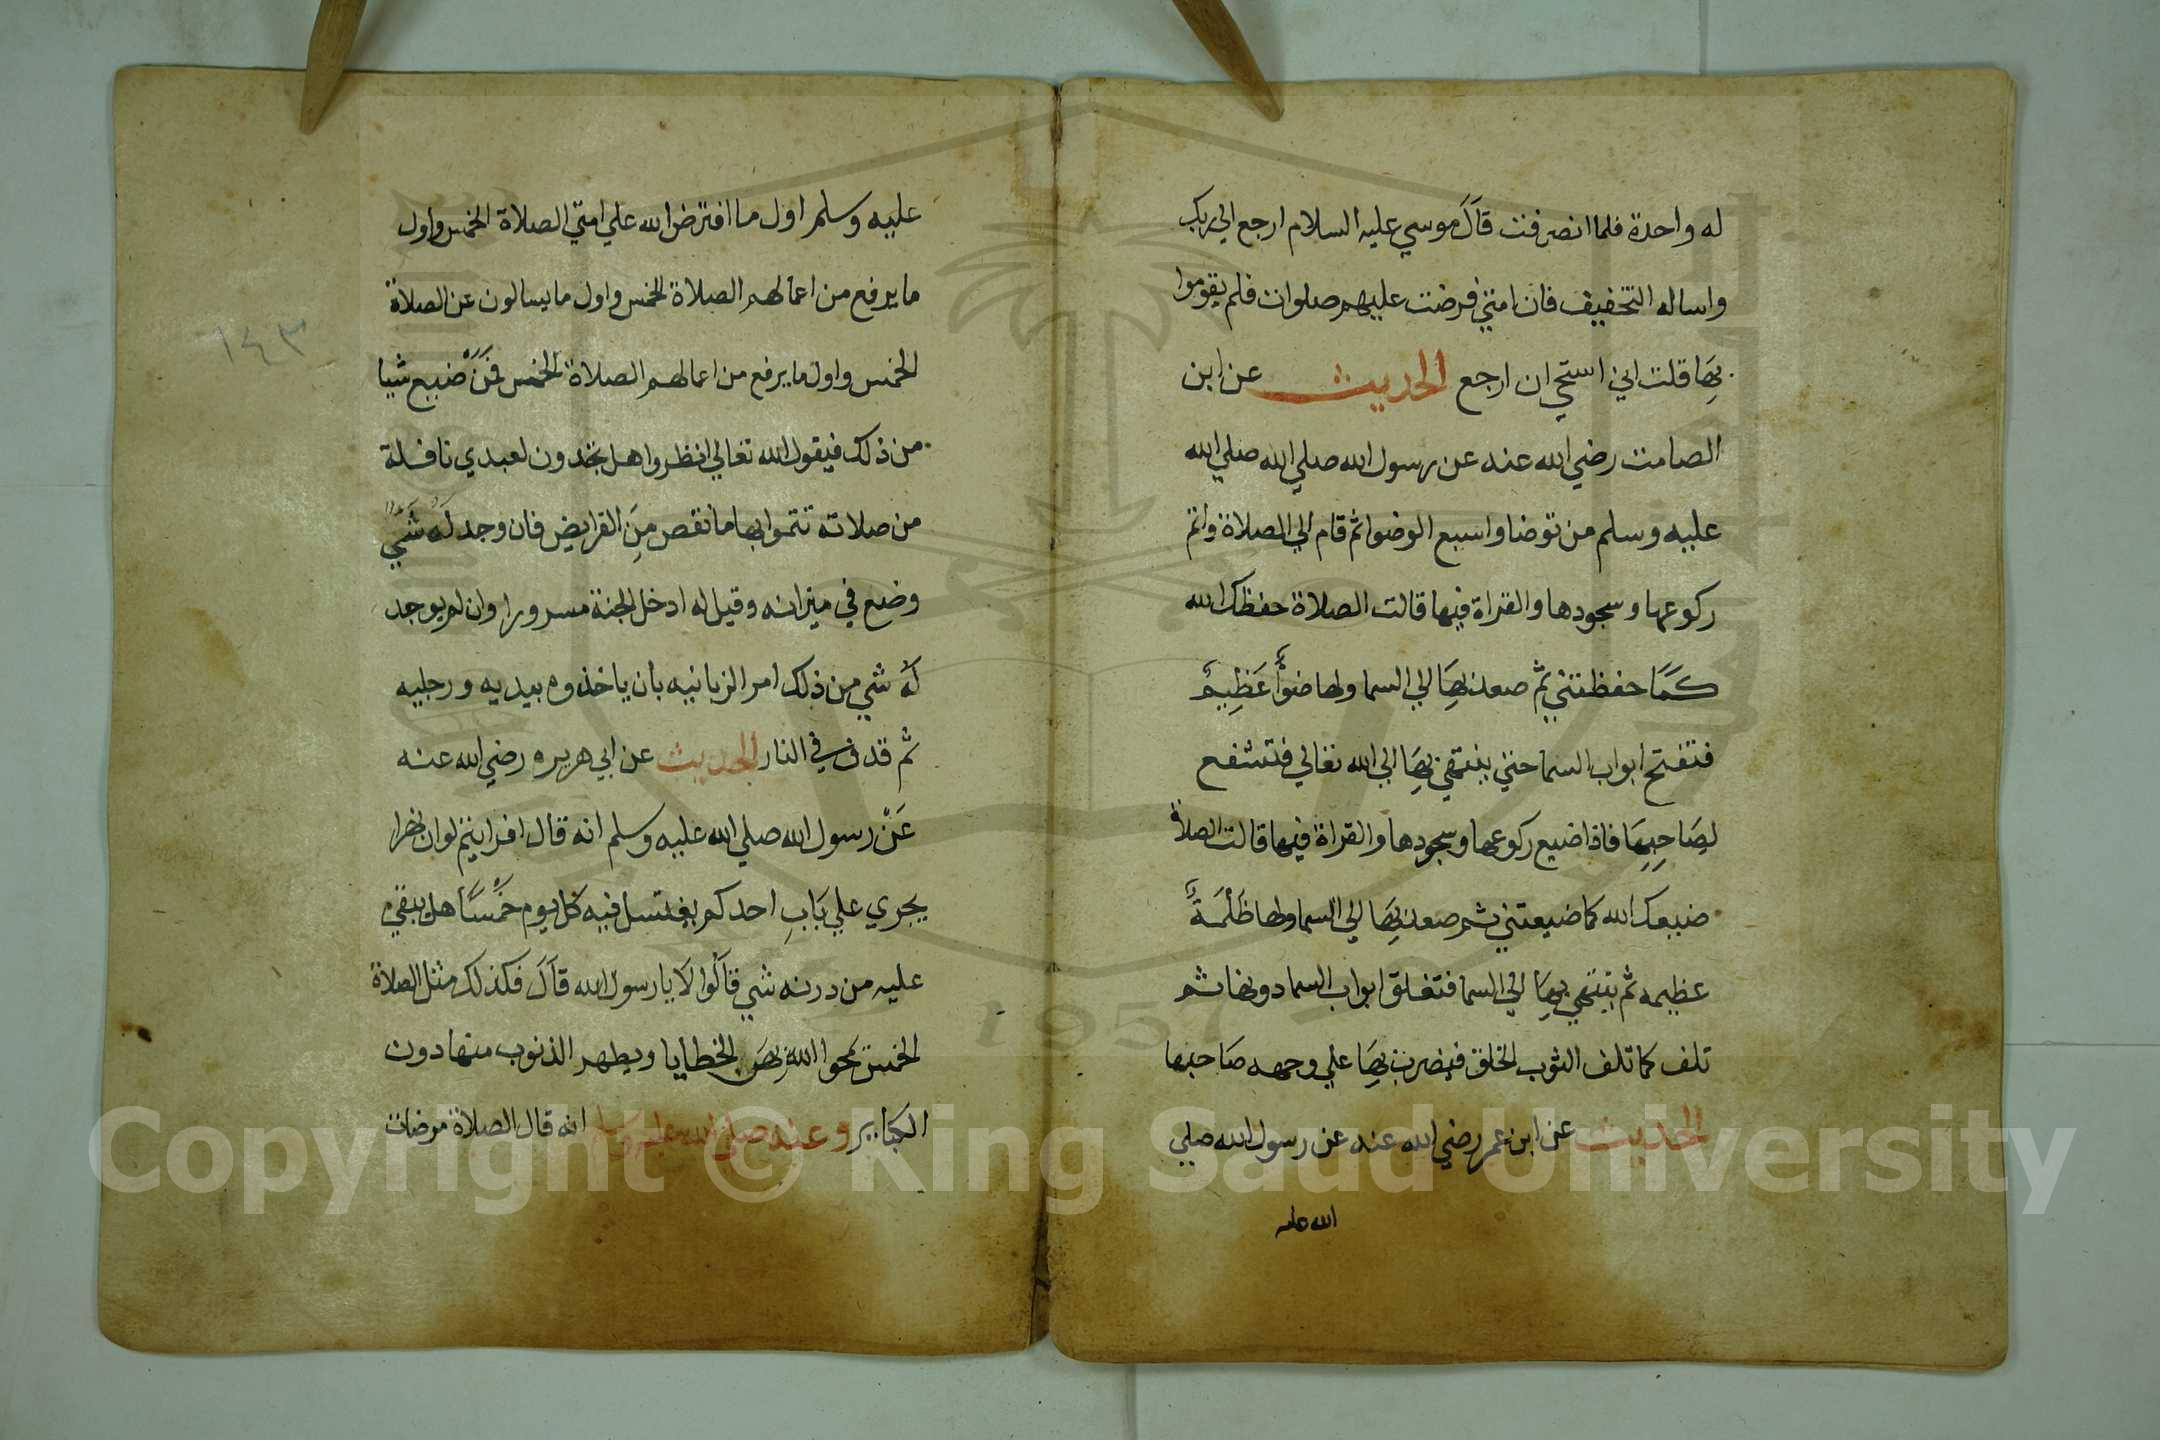 له واحدة فلما انصرفت قال موسي عليه السلام ارجع الي ربك
واساله التخفيف فان امتي فرضت عليهم صلوات فلم يقوموا
بها قلت اني استحي ان ارجع الحديث عن ابن
الصامت رضي الله عنه عن رسول الله صلي الله صلي الله
عليه وسلم من توضا واسبع الوضوا ثم قام الي الصلاة واتم
ركوعها وسجودها والقراة فيها قالت الصلاة حفظك الله
كَمَا حفظتني ثم صعد بهَا الي السما ولها ضوأ عَظِيمٌ
فتفتح ابواب السما حتي ينتهي بهَا الي الله تعالي فتشفع
لصَاحِبِهَا فاذا ضيع ركوعها وسجودها والقراة فيها قالت الصلاة
ضيعك الله كما ضيعتني ثم صعد بهَا الي السما ولها ظَلْمَةٌ
عظيمه ثم ينتهي بهَا الي السما فتغلق ابواب السما دونها ثم
تلف كما تلف الثوب الخلق فيضرب بهَا علي وجهه صَاحبها
الحديث عن ابن عمر رضي الله عنه عن رسول الله صلي
الله عليه
عليه وسلم اول ما افترض الله علي امتي الصلاة الخمس واول
ما يرفع من اعمالهم الصلاة الخمس واول ما يسالون عن الصلاة
الخمس واول ما يرفع من اعمالهم الصلاة الخمس فَمَنْ ضيع شيا
من ذلك فيقول الله تعالي انظروا هل تجدون لعبدي نافلة
من صلاته تتموا بها ما نقص مِنَ الفرايض فان وجد لَهُ شَيٌ
وضع في ميزانه وقيل له ادخل الجنة مسرورا وان لم يوجد
لَهُ شي من ذلك امر الزبانيه بان ياخذوه بيديه ورجليه
ثم قدف في النار الحديث عن ابي هريره رضي الله عنه
عَنْ رسول الله صلي الله عليه وسلم انه قال افرايتم لوان نهرا
يجري علي بَابِ احدكم يغتسل فيه كل يوم خَمْسًا هل يبقي
عليه من درنه شي قالُوا لَا يا رسول الله قَالَ فكذلك مثل الصلاة
الخمس يمحوا الله بهن الخطايا ويطهر الذنوب منها دون
الكبايير وعنه صلي الله عليه وسلم انه قال الصلاة مرضات
١٤٣
1957
Copyright © King Saud University